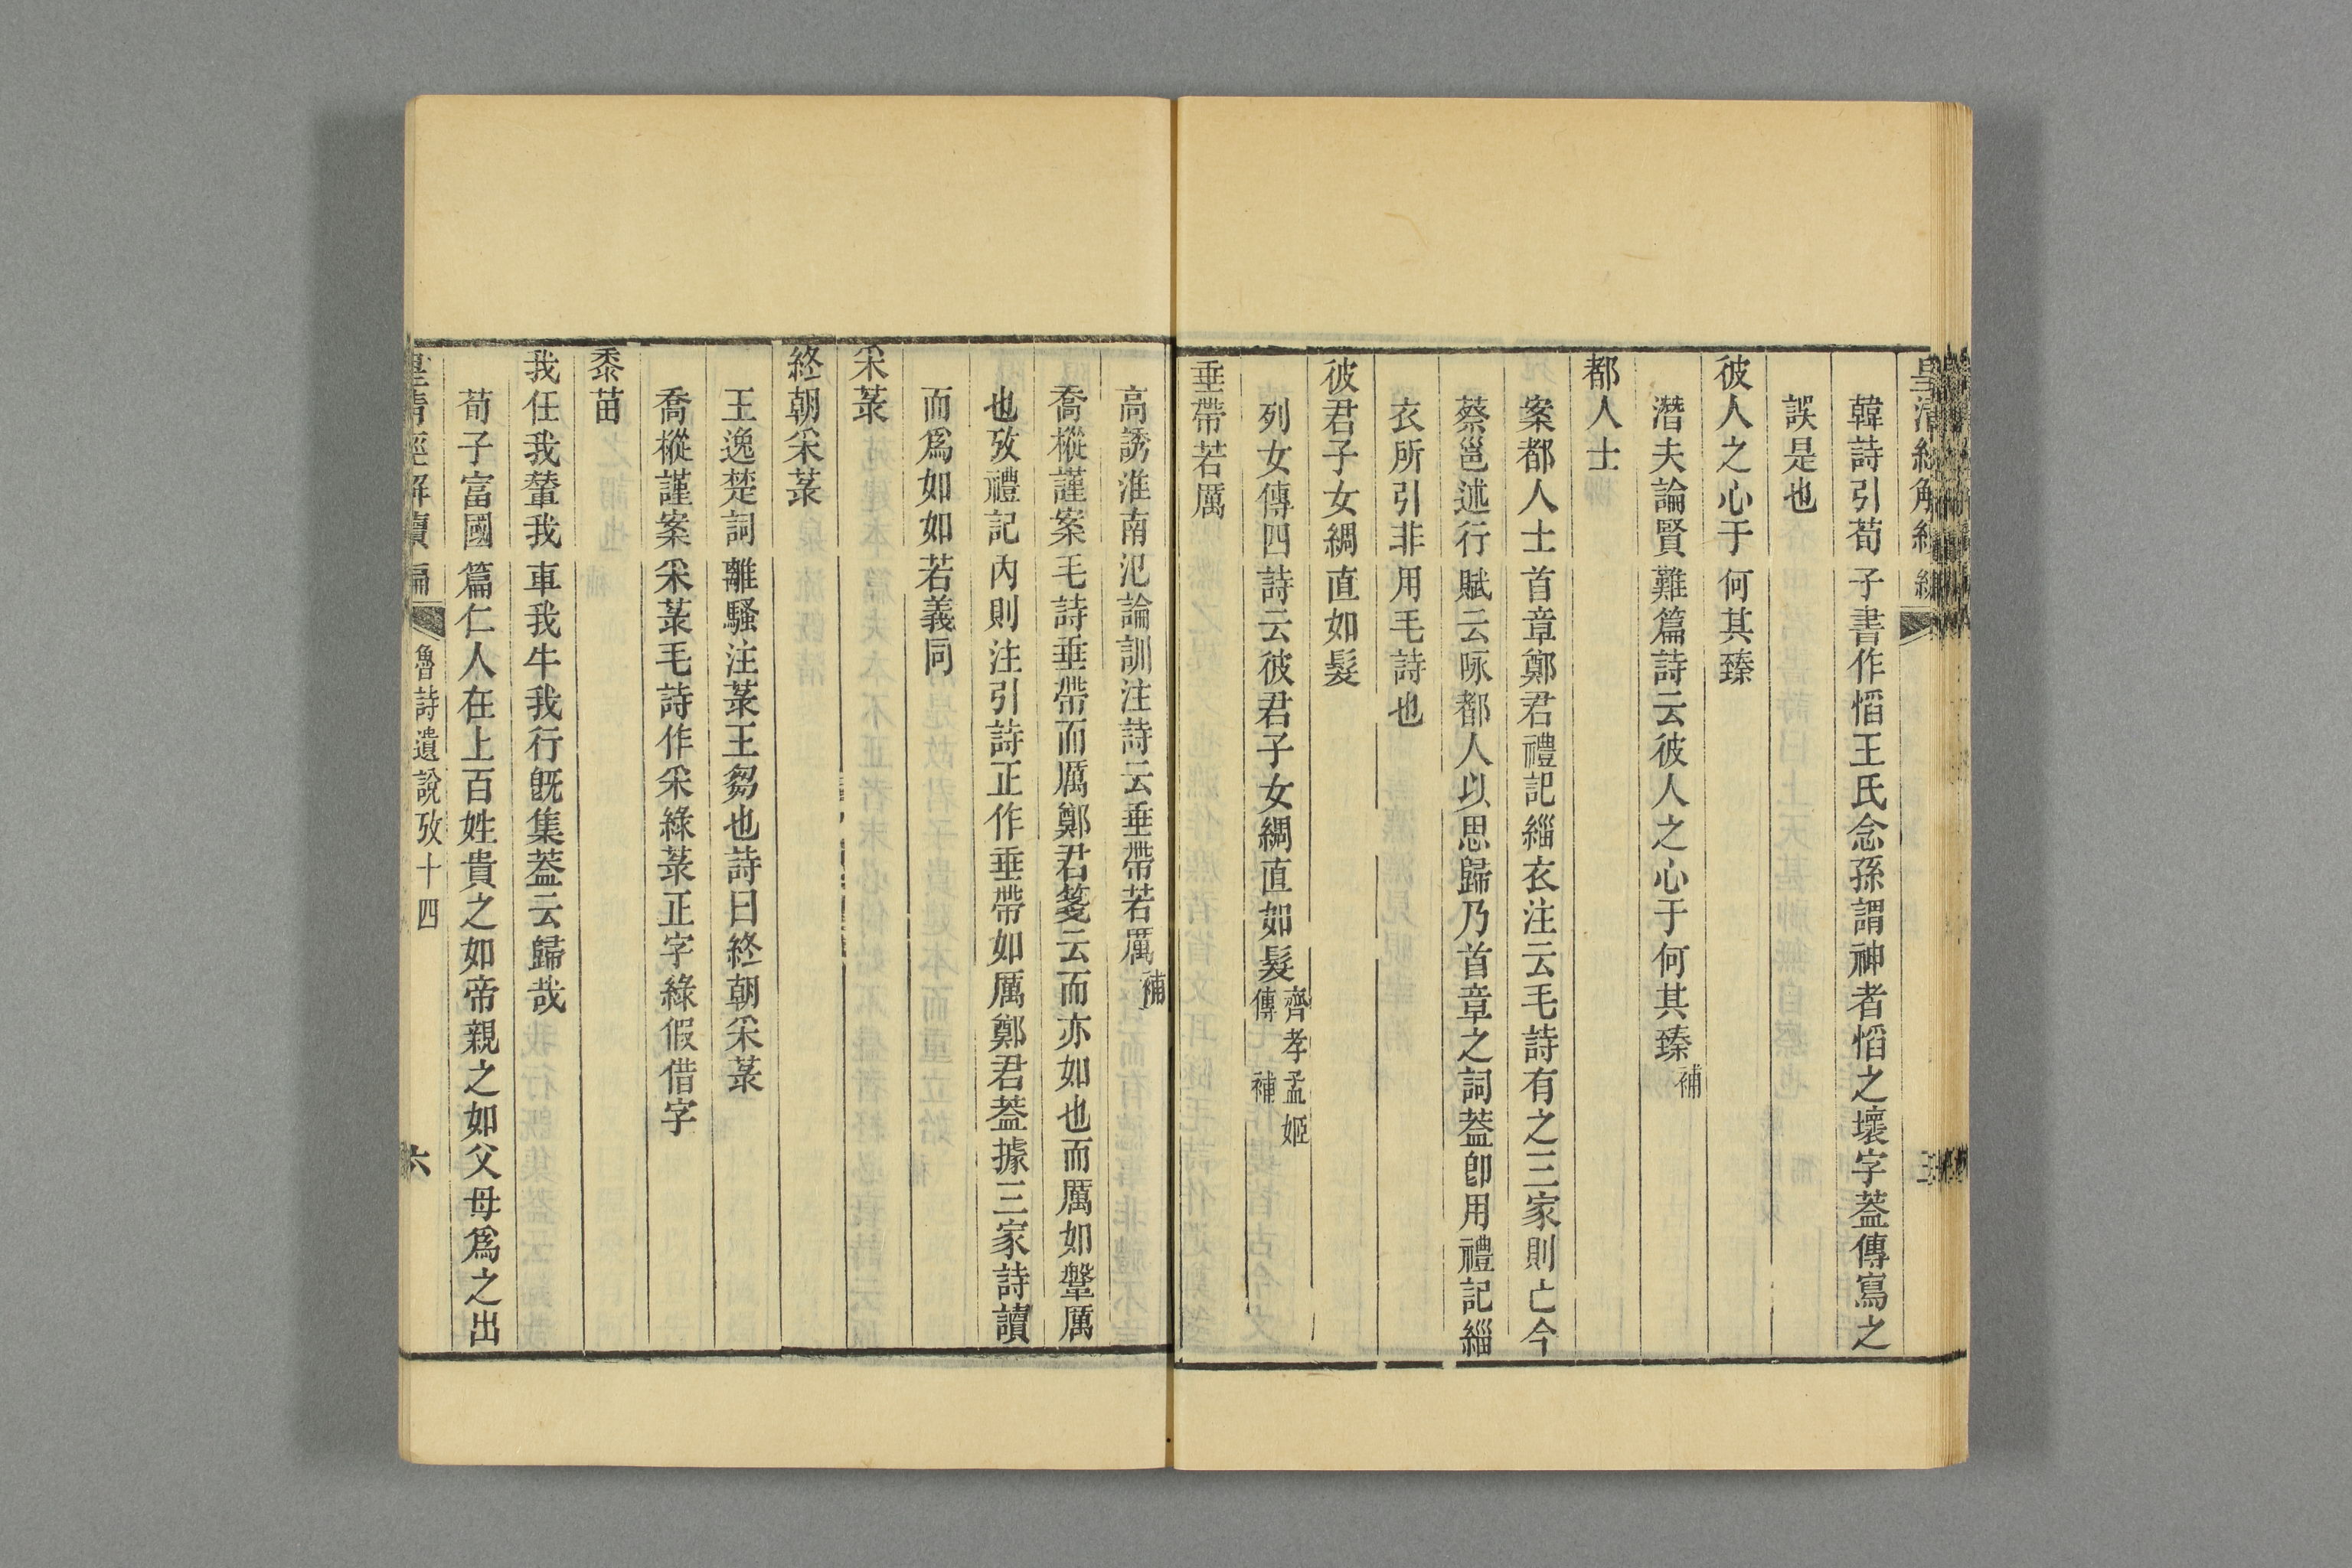 皇清經解續編
韓詩引荀子書作慆王氏念孫謂神者慆之壞字葢傳寫之
誤是也
彼人之心于何其臻
潛夫論賢難篇詩云彼人之心于何其臻補
都人士
案都人士首章鄭君禮記緇衣注云毛詩有之三家則亡今
蔡邕述行賦云咏都人以思歸乃首章之詞葢卽用禮記緇
衣所引非用毛詩也
彼君子女綢直如髮
列女傳四詩云彼君子女綢直如髮齊孝孟姬傳補
垂帶若厲
高誘淮南氾論訓注詩云垂帶若厲補
喬樅謹案毛詩垂帶而厲鄭君箋云而亦如也而厲如鞶厲
也攷禮記內則注引詩正作垂帶如厲鄭君葢據三家詩讀
而爲如如若義同
采菉
終朝采菉
王逸楚詞離騷注菉王芻也詩曰終朝采菉
喬樅謹案采菉毛詩作采綠菉正字綠假借字
黍苗
我任我輦我車我牛我行旣集葢云歸哉
荀子富國篇仁人在上百姓貴之如帝親之如父母爲之出
皇清經解續編 魯詩遺說攷十四 六